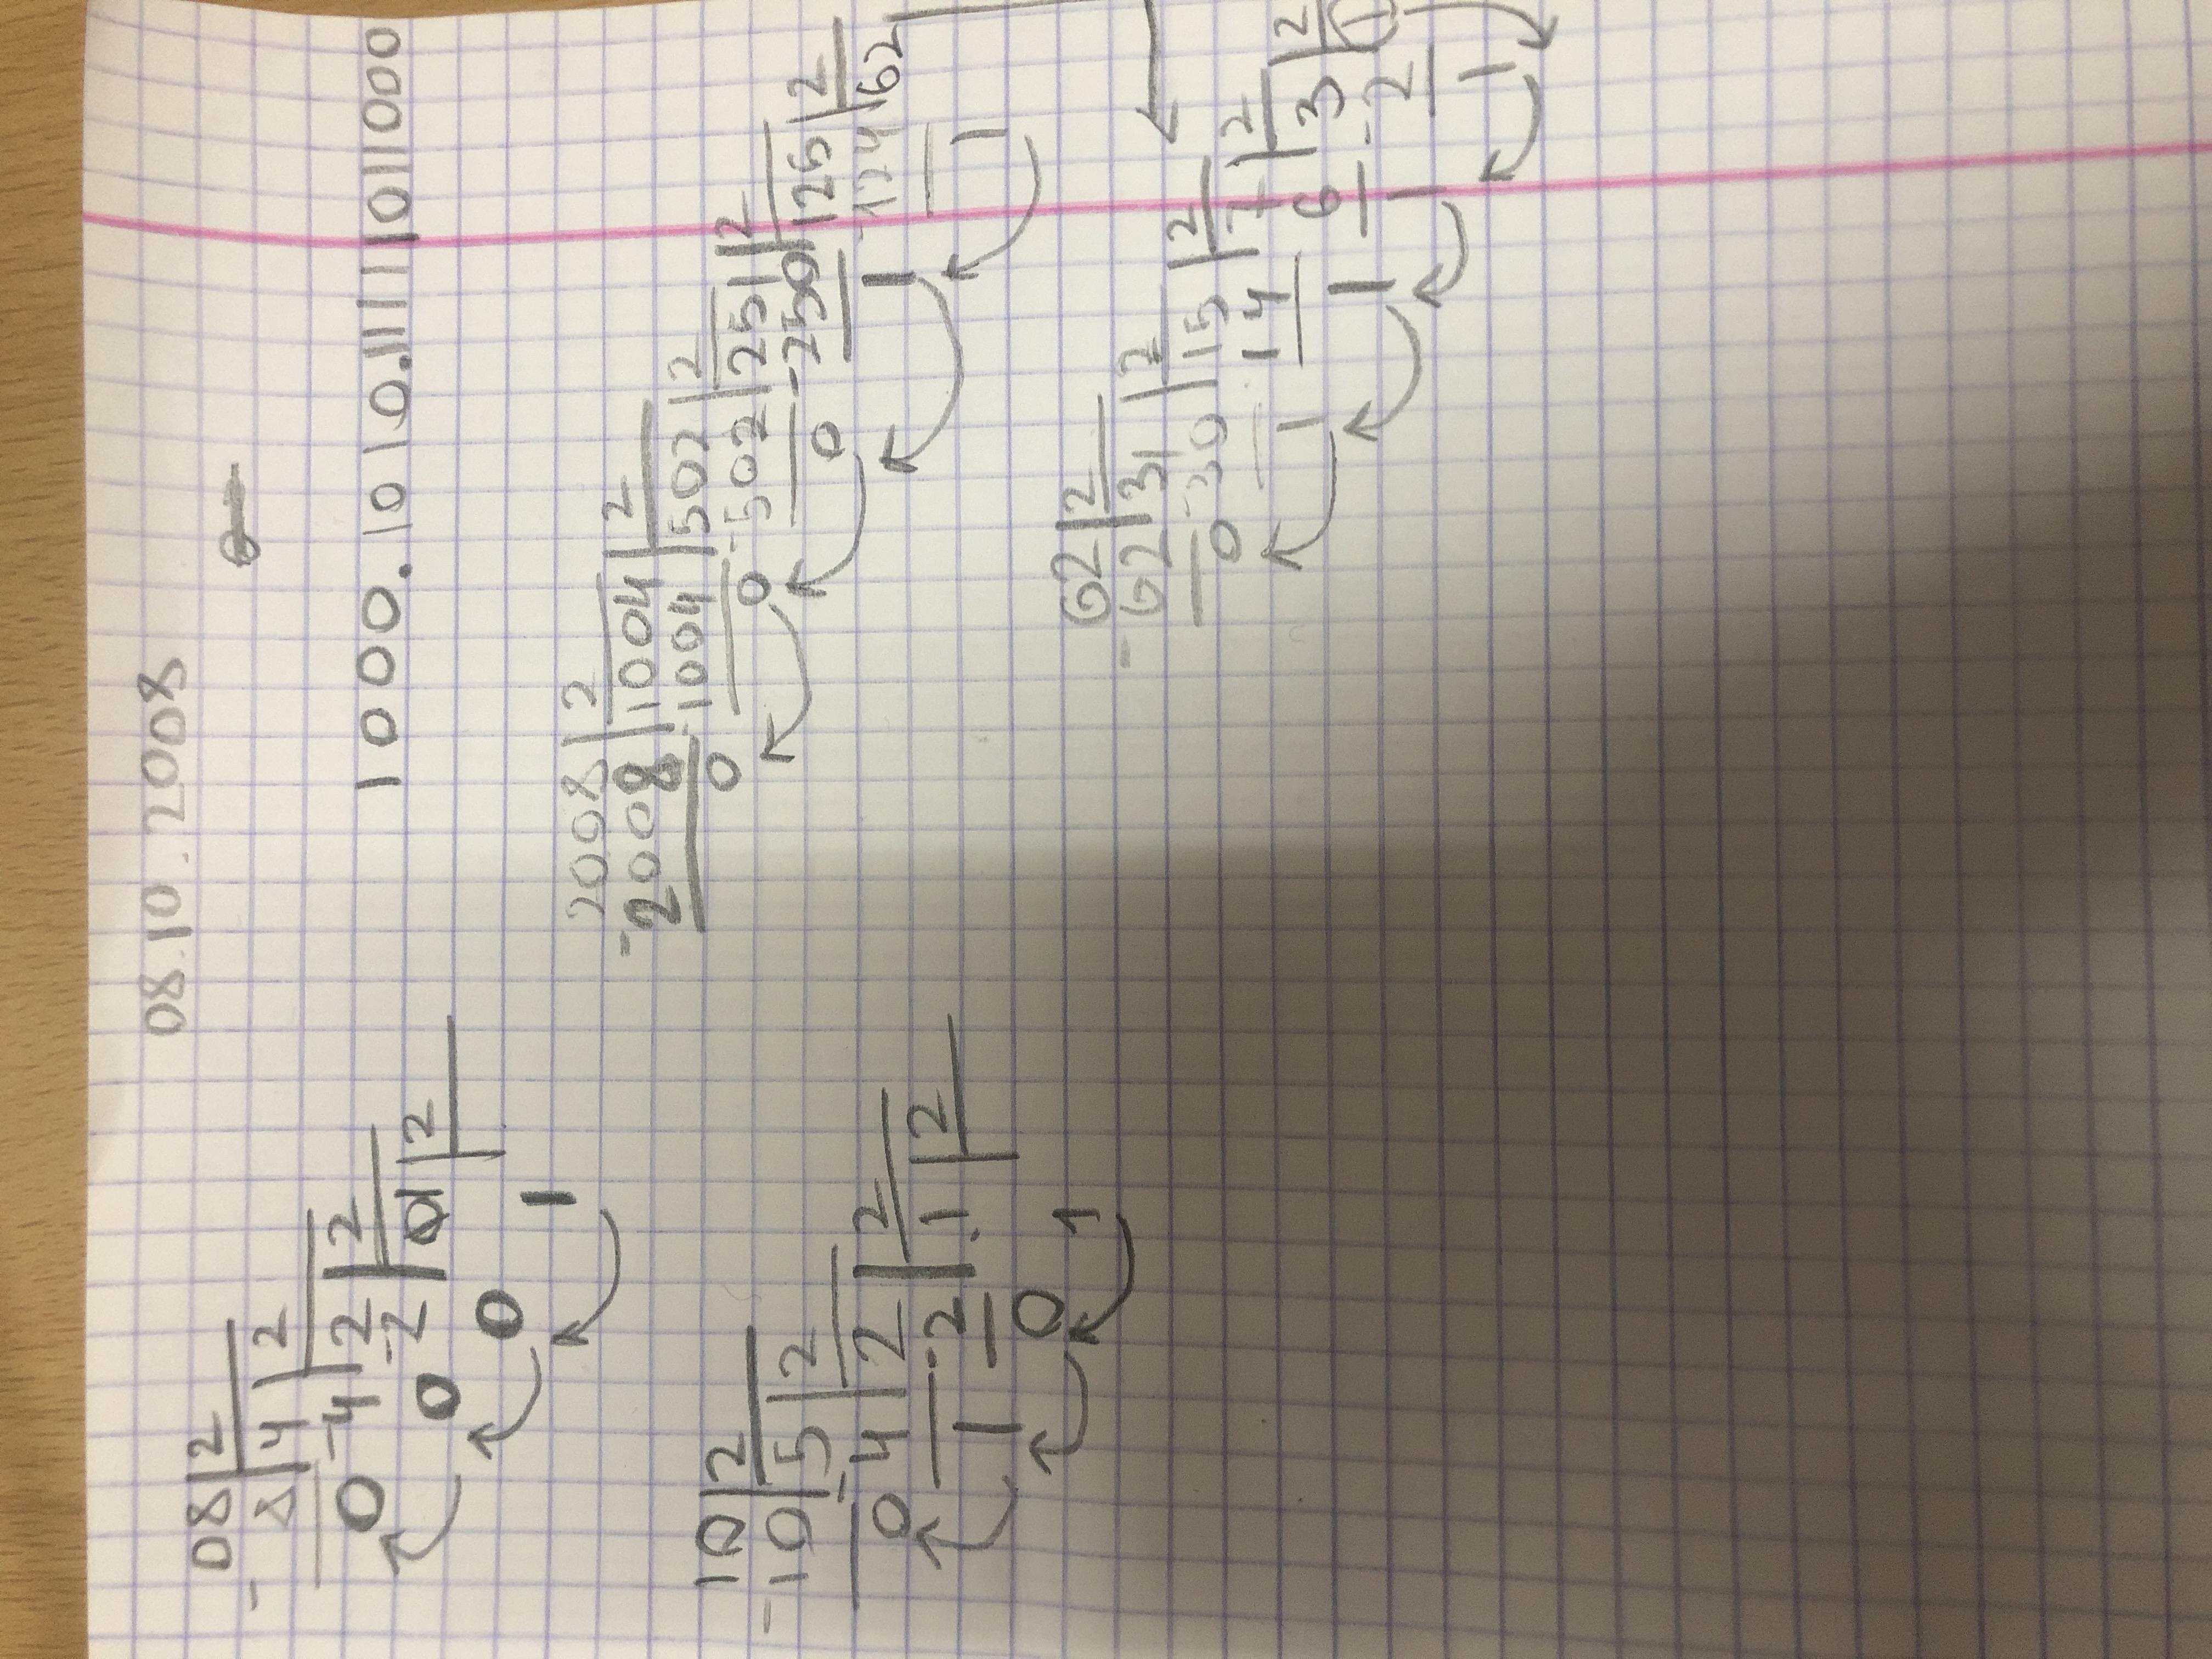 08.10.2008
1000.1010.11111011000
08|2
-8|4|2
0 -4|2|2
0 -2|1|2
0 1
10|2
-10|5|2
0 -4|2|2
1 -2|1|2
0 1
2008|2
-2008|1004|2
0 1004|502|2
0 -502|251|2
0 -250|125|2
1 -124|62
1
62|2
-62|31|2
0 -30|15|2
1 14|7|2
1 6|3|2
1 -2|1
1